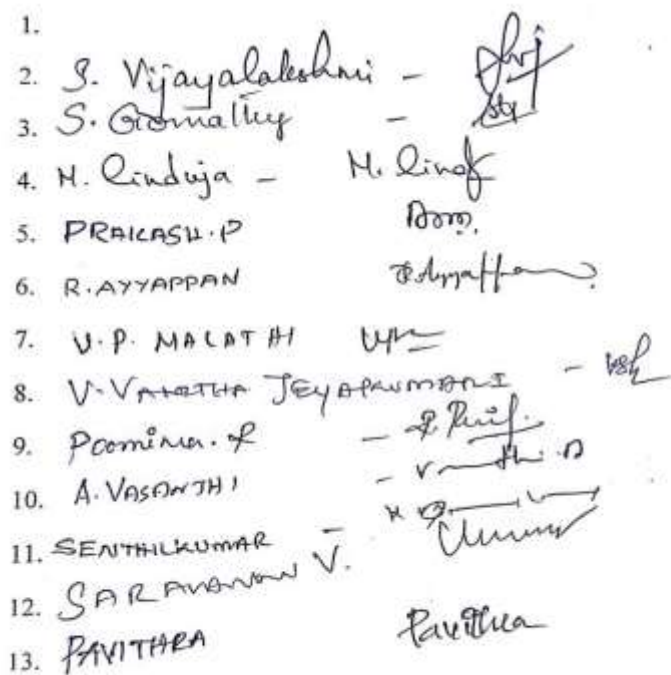 1.
2. S. Vijayalakshmi -
3. S. Gomathy -
4. M. Linduja - M. Lino
5. PRAKASH.P
6. R.AYYAPPAN R.Ayyappan
7. V.P. MALATHI
8. V. JEYAPKUMARI -
9. Poornima. R -
10. A. VASANTHI -
11. SENTHILKUMAR -
12. SARAVANAN V.
13. PAVITHRA Pavithra